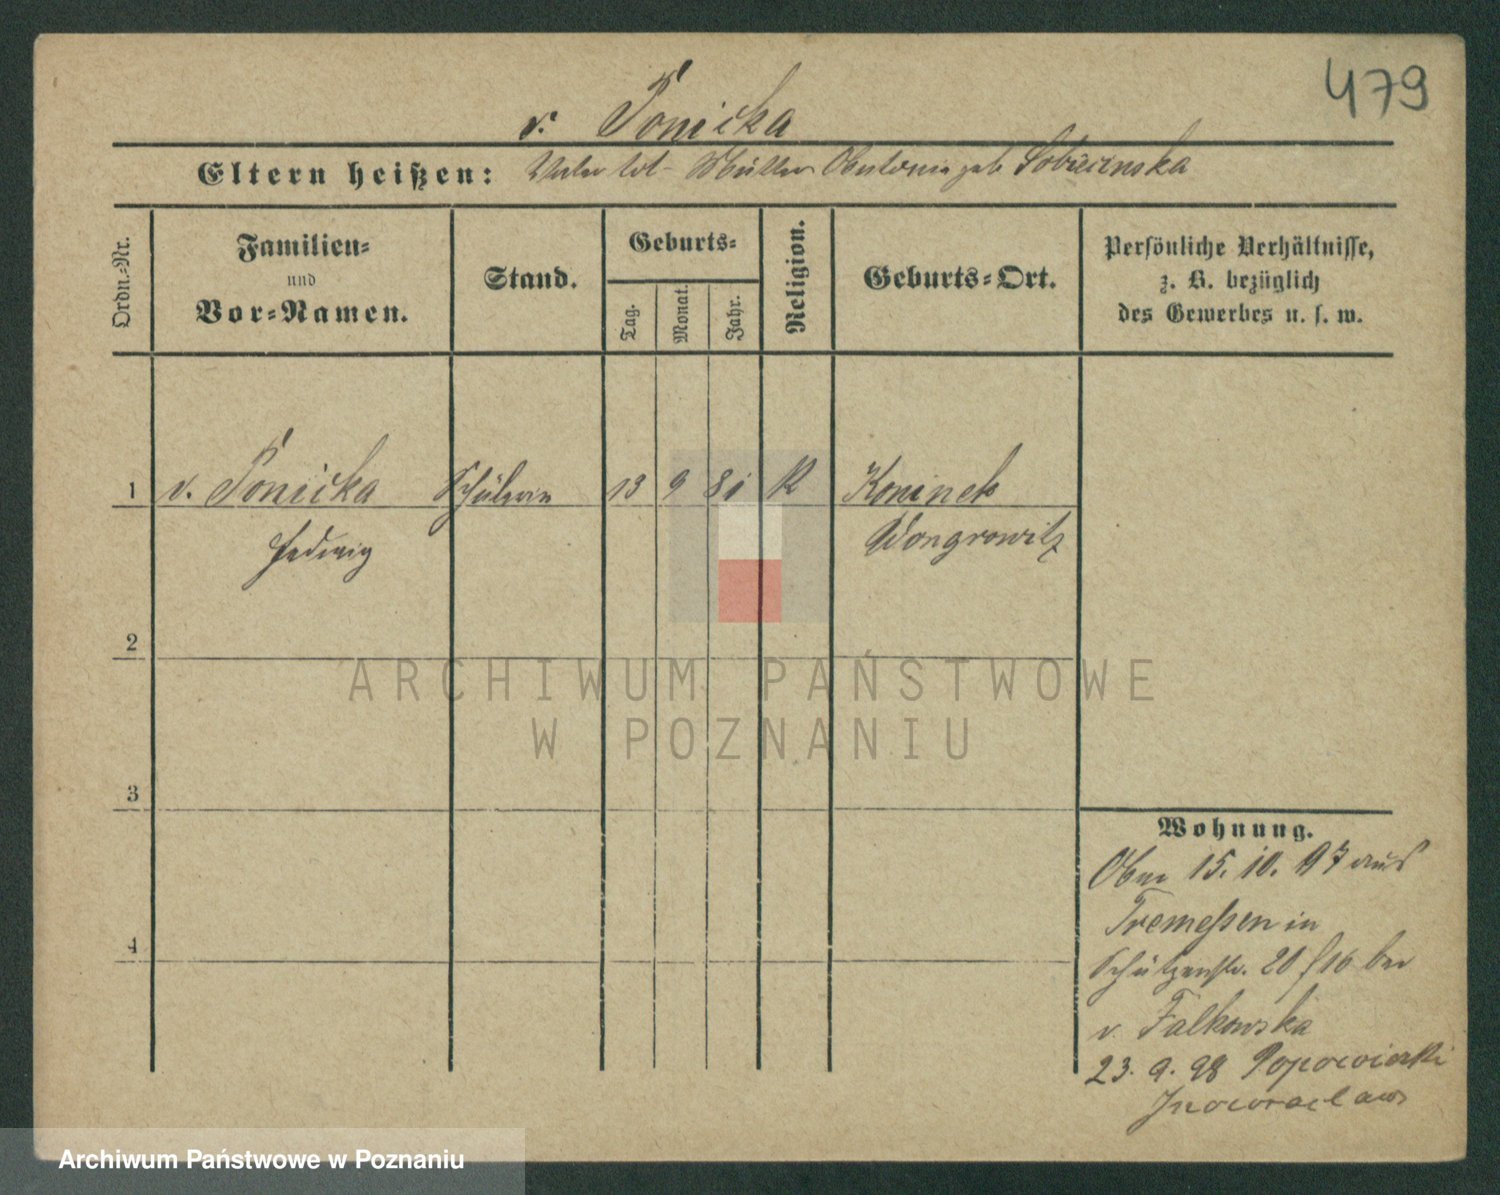 479
v. Ponicka
Eltern heißen: Vater tot - Mutter Antonie geb Sobiecinska
Ordn.-Nr.
Familien-
und
Vor-Namen.
Stand.
Geburts-
Tag.
Monat.
Jahr.
Religion.
Geburts-Ort.
Persönliche Verhältnisse,
z. B. bezüglich
des Gewerbes u. s. w.
1 v. Ponicka Schülerin 13 9 81 K Koninek
Hedwig Wongrowitz
2
3
4
ARCHIWUM PAŃSTWOWE
W POZNANIU
Wohnung.
15. 10. 97 aus
Tremessen in
Schützenstr. 20 /16 bei
v. Falkowska
23. 9. 98
Inowraclaw
Archiwum Państwowe w Poznaniu